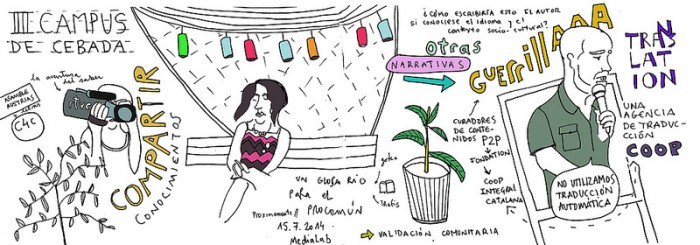 III CAMPUS
DE CEBADA
la aventura del saber
ASAMBLEA
AUSTRIAS
C4C
rtve
COMPARTIR
CONOCIMIENTOS
UN GLOSARIO
PARA EL
PROCOMÚN
Proximamente
15.7.2014
MediaLab
¿CÓMO ESCRIBIRÍA ESTO EL AUTOR
SI CONOCIESE EL IDIOMA Y EL
CONTEXTO SOCIO-CULTURAL?
otras
NARRATIVAS
GUERRILLA
TRANSLATION
UNA
AGENCIA
DE TRADUC-
CIÓN
COOP
CURADORES
DE CONTE-
NIDOS P2P
FONDATION
COOP
INTEGRAL
CATALANA
NO UTILIZAMOS
TRADUCCIÓN
AUTOMÁTICA
VALIDACIÓN COMUNITARIA